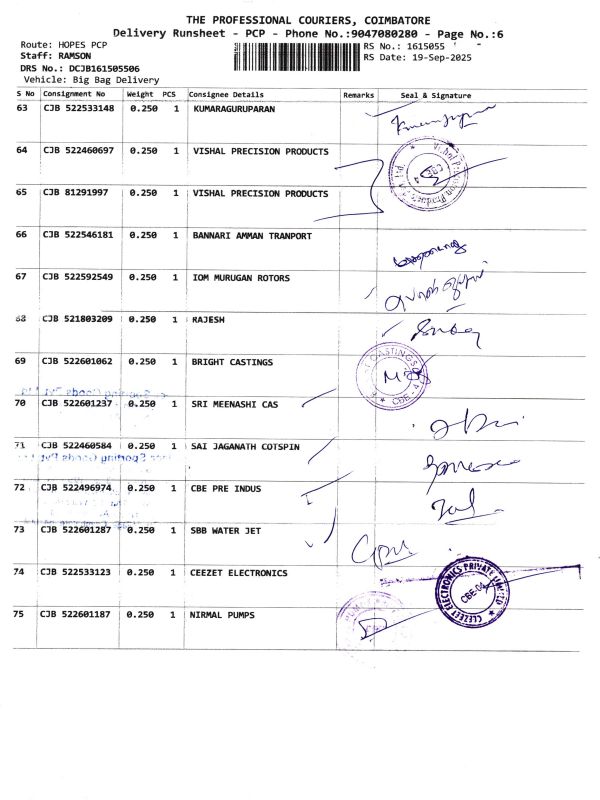 THE PROFESSIONAL COURIERS, COIMBATORE
Delivery Runsheet - PCP - Phone No.:9047080280 - Page No.:6
Route: HOPES PCP
RS No.: 1615055
Staff: RAMSON
RS Date: 19-Sep-2025
DRS No.: DCJB161505506
Vehicle: Big Bag Delivery
S No Consignment No Weight PCS Consignee Details Remarks Seal & Signature
63 CJB 522533148 0.250 1 KUMARAGURUPARAN
64 CJB 522460697 0.250 1 VISHAL PRECISION PRODUCTS
65 CJB 81291997 0.250 1 VISHAL PRECISION PRODUCTS
66 CJB 522546181 0.250 1 BANNARI AMMAN TRANPORT
67 CJB 522592549 0.250 1 IOM MURUGAN ROTORS
68 CJB 521803209 0.250 1 RAJESH
69 CJB 522601062 0.250 1 BRIGHT CASTINGS
CASTINGS
CBE - 4
70 CJB 522601237 0.250 1 SRI MEENASHI CAS
71 CJB 522460584 0.250 1 SAI JAGANATH COTSPIN
72 CJB 522496974 0.250 1 CBE PRE INDUS
73 CJB 522601287 0.250 1 SBB WATER JET
74 CJB 522533123 0.250 1 CEEZET ELECTRONICS
CEEZET ELECTRONICS PRIVATE LIMITED
CBE-04
75 CJB 522601187 0.250 1 NIRMAL PUMPS